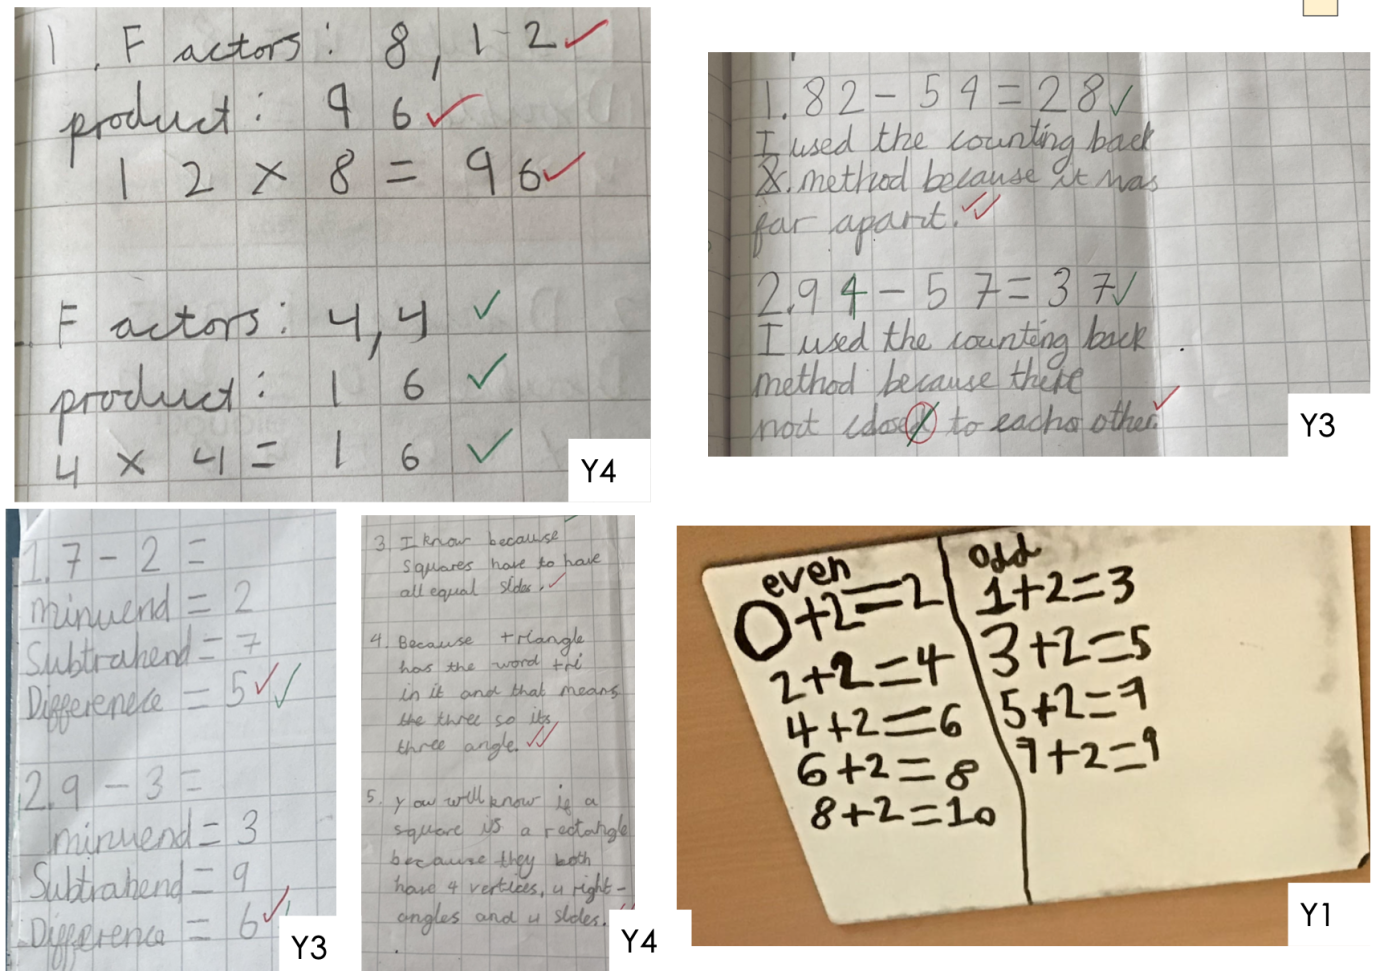 1. Factors: 8, 12
product: 96
12 × 8 = 96
Factors: 4, 4
product: 16
4 × 4 = 16
Y4
1. 82 - 54 = 28
I used the counting back
method because it was
far apart.
2. 94 - 57 = 37
I used the counting back
method because there
not close to eacho other.
Y3
1. 7 - 2 =
minuend = 2
Subtrahend = 7
Difference = 5
2. 9 - 3 =
minuend = 3
Subtrahend = 9
Difference = 6
Y3
3. I know because
squares have to have
all equal sides.
4. Because triangle
has the word tri
in it and that means
the three so its
three angle.
5. You will know if a
square is a rectangle
because they both
have 4 vertices, 4 right-
angles and 4 sides.
Y4
even
0+2=2
2+2=4
4+2=6
6+2=8
8+2=10
odd
1+2=3
3+2=5
5+2=7
7+2=9
Y1